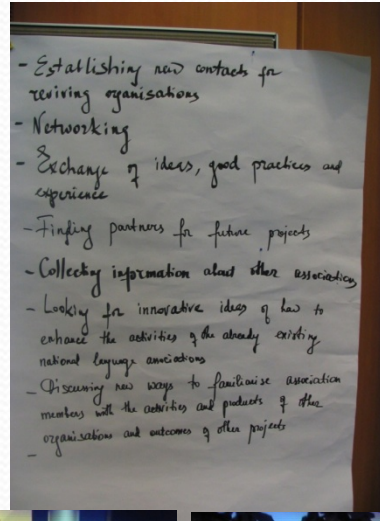 - Establishing new contacts for
reviving organisations
- Networking
- Exchange of ideas, good practices and
experience
- Finding partners for future projects
- Collecting information about other associations
- Looking for innovative ideas of how to
enhance the activities of the already existing
national language associations
- Discussing new ways to familiarise association
members with the activities and products of other
organisations and outcomes of other projects
-